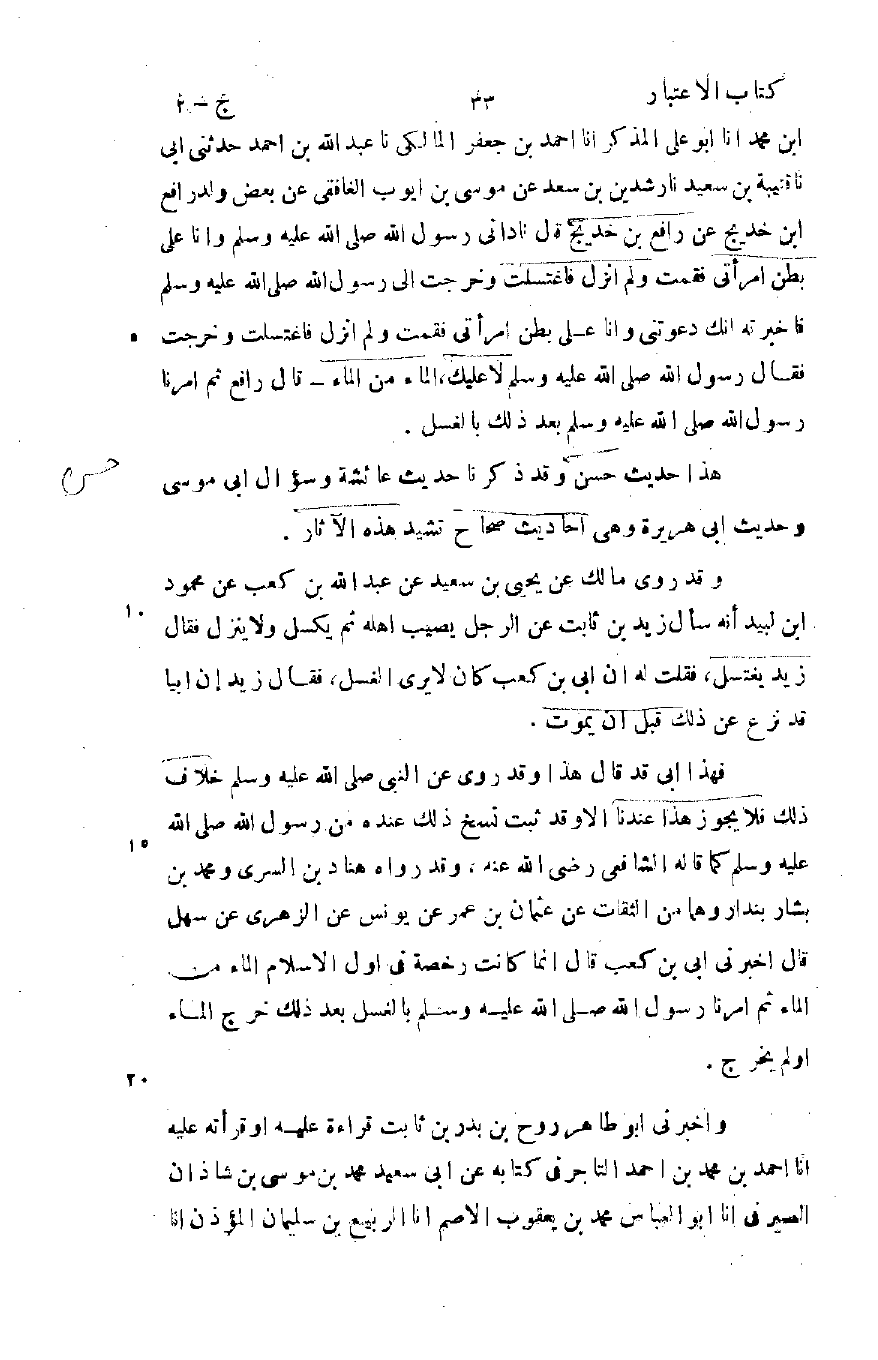 كتاب الاعتبار ٣٣ ج - ٢
ابن محمد انا ابو على المذكر انا احمد بن جعفر المالكى نا عبد الله بن احمد حدثنى ابى
نا قتيبة بن سعيد نا رشدين بن سعد عن موسى بن ايوب الغافقى عن بعض ولد رافع
ابن خديج عن رافع بن خديج قال نادانى رسول الله صلى الله عليه وسلم وانا على
بطن امرأتى فقمت ولم انزل فاغتسلت وخرجت الى رسول الله صلى الله عليه وسلم
فاخبرته انك دعوتنى وانا على بطن امرأتى فقمت ولم انزل فاغتسلت وخرجت ٥
فقال رسول الله صلى الله عليه وسلم لا عليك، الماء من الماء – قال رافع ثم امرنا
رسول الله صلى الله عليه وسلم بعد ذلك بالغسل .
هذا حديث حسن وقد ذكرنا حديث عائشة وسؤال ابى موسى
حسن
وحديث ابى هريرة وهى احاديث صحاح تشيد هذه الآثار .
وقد روى مالك عن يحيى بن سعيد عن عبد الله بن كعب عن محمود
ابن لبيد أنه سأل زيد بن ثابت عن الرجل يصيب اهله ثم يكسل ولا ينزل فقال ١٠
زيد يغتسل، فقلت له ان ابى بن كعب كان لا يرى الغسل، فقال زيد إن ابيا
قد نزع عن ذلك قبل ان يموت .
فهذا ابى قد قال هذا وقد روى عن النبى صلى الله عليه وسلم خلاف
ذلك فلا يجوز هذا عندنا الا وقد ثبت نسخ ذلك عنده من رسول الله صلى الله ١٥
عليه وسلم كما قاله الشافعى رضى الله عنه ، وقد رواه هناد بن السرى ومحمد بن
بشار بندار وهما من الثقات عن عثمان بن عمر عن يونس عن الزهرى عن سهل
قال اخبرنى ابى بن كعب قال انما كانت رخصة فى اول الاسلام الماء من
الماء ثم امرنا رسول الله صلى الله عليه وسلم بالغسل بعد ذلك خرج الماء
اولم يخرج . ٢٠
واخبرنى ابو طاهر روح بن بدر بن ثابت قراءة عليه او قرأته عليه
انا احمد بن محمد بن احمد التاجر فى كتابه عن ابى سعيد محمد بن موسى بن شاذان
الصيرفى انا ابو العباس محمد بن يعقوب الاصم انا الربيع بن سليمان المؤذن انا